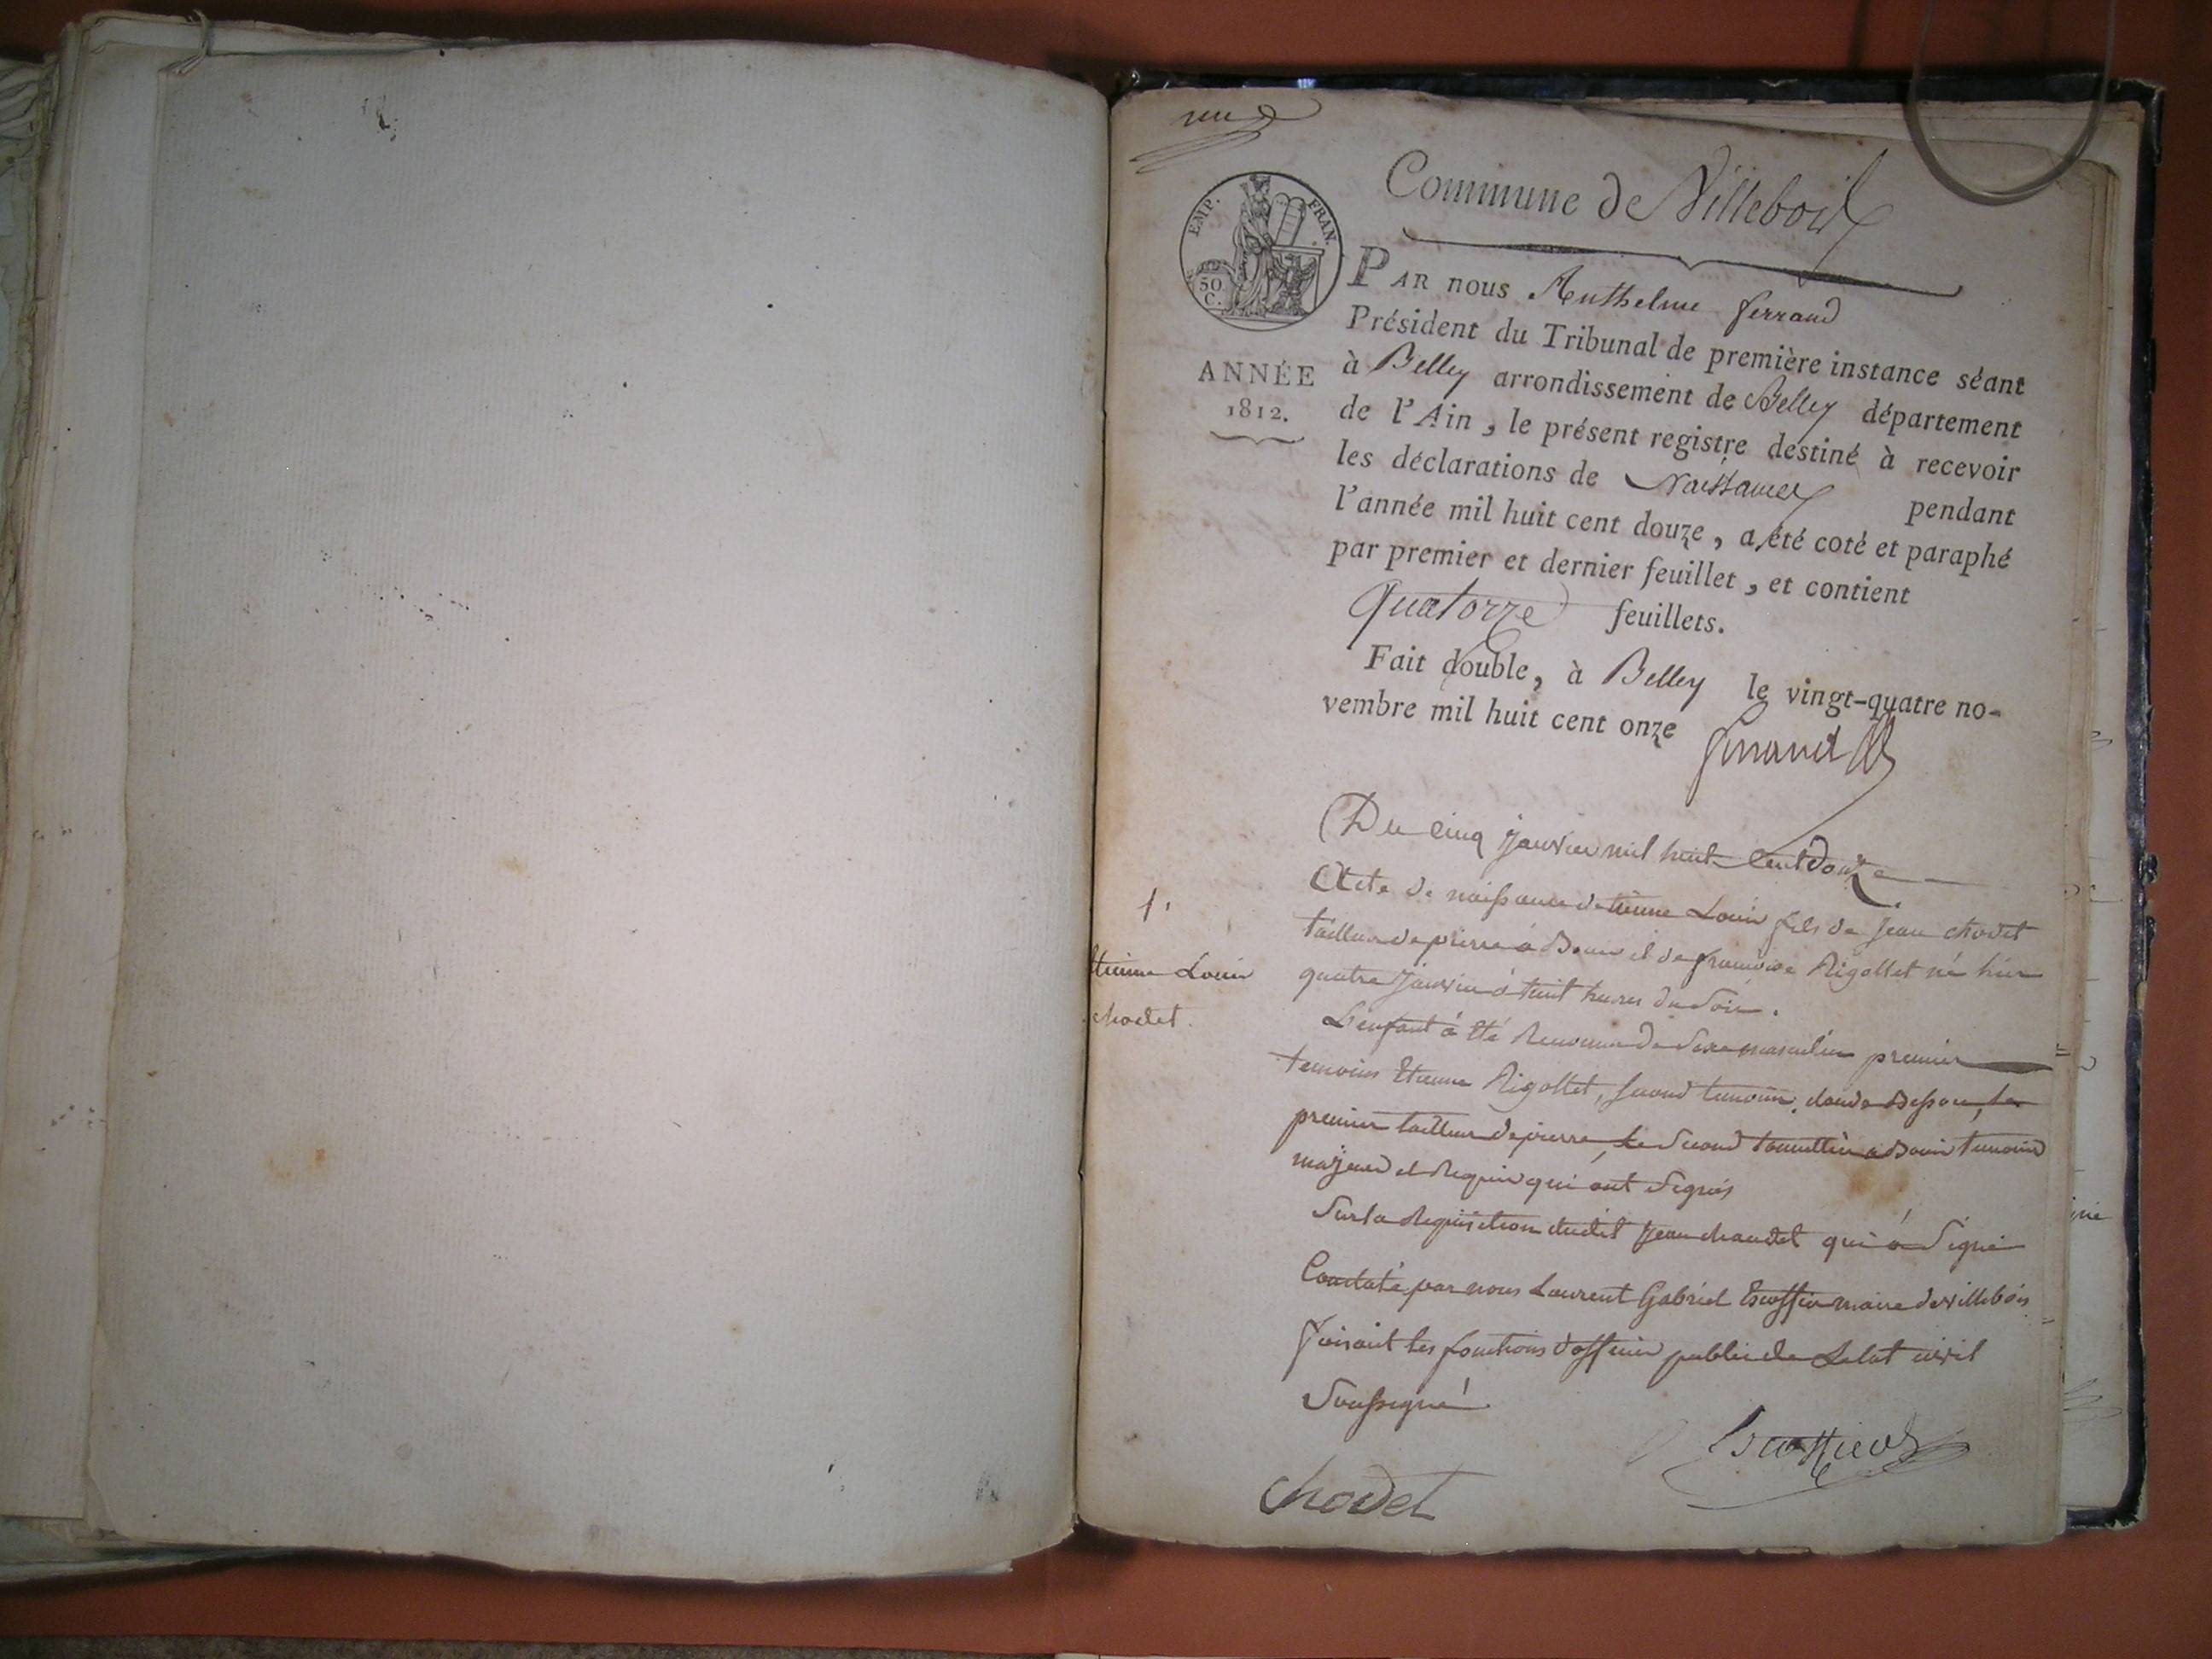 une
Commune de Villebois
EMP. FRAN.
50
C.
ANNÉE
1812.
PAR nous Anthelme ferrand
Président du Tribunal de première instance séant
à Belley arrondissement de Belley département
de l'Ain, le présent registre destiné à recevoir
les déclarations de Naissances pendant
l'année mil huit cent douze, a été coté et paraphé
par premier et dernier feuillet, et contient
quatorze feuillets.
Fait double, à Belley le vingt-quatre no-
vembre mil huit cent onze
ferrand
Du cinq janvier mil huit cent douze
1.
Etienne Louis
chodet.
Acte de naissance detienne Louis fils de Jean chodet
tailleur de pierre a Bouis et de francoise Rigollet né hier
quatre janvier à huit heures du soir.
L'enfant à été Reconnu de Sexe masculin premier
temoins Etienne Rigollet, second temoin, claude Besson, le
premier tailleur de pierre, le second a Bouis temoins
majeurs et Requis qui ont signés
Sur la Requisition dudit jean chaudet qui à signé
Constaté par nous Laurent Gabriel Escoffier maire de villebois
faisant les fonctions d'officier public de Letat civil
Soussigné
Escoffier
chodet